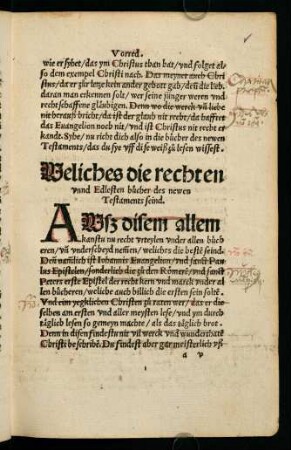 Vorred.
wie er syhet/das ym Christus than hat/vnd folget el-
so dem exempel Christi nach. Das meynet auch Chri
stus/da er zur letze kein ander gebott gab/deñ die lieb.
daran man erkennen solt/wer seine jünger weren vnd
rechtschaffene gläubigen. Denn wo die werck vñ liebe
nit herauß bricht/da ist der glaub nit recht/da hafftet
das Euangelion noch nit/vnd ist Christus nit recht er
kandt. Syhe/nu richt dich also in die bücher des newen
Testaments/das du sye vff diſe weiß zů lesen wissest.
Weliches die rechten
vnnd Edlesten bücher des newen
Testaments seind.
AVſz disem allem
kanstu nu recht vrteylen vnder allen büch
eren/vñ vnderscheyd nemen/welichs die beste seind.
Deñ nämlich ist Johannis Euangelion/vnd sanct Pau
lus Epistolen/sonderlich die zů den Römern/vnd sanct
Peters erste Epistel der recht kern vnd marck vnder al
len büchern/weliche auch billich die ersten sein solten.
Vnd eim yegklichen Christen zů raten wer/das er die
selben am ersten vnd aller meysten lese/vnd ym durch
täglich lesen so gemeyn machte/als das täglich brot.
Denn in disen findestu nit vil werck vnd wunderthaten
Christi beschribē. Du findest aber gar meisterlich vß
a v